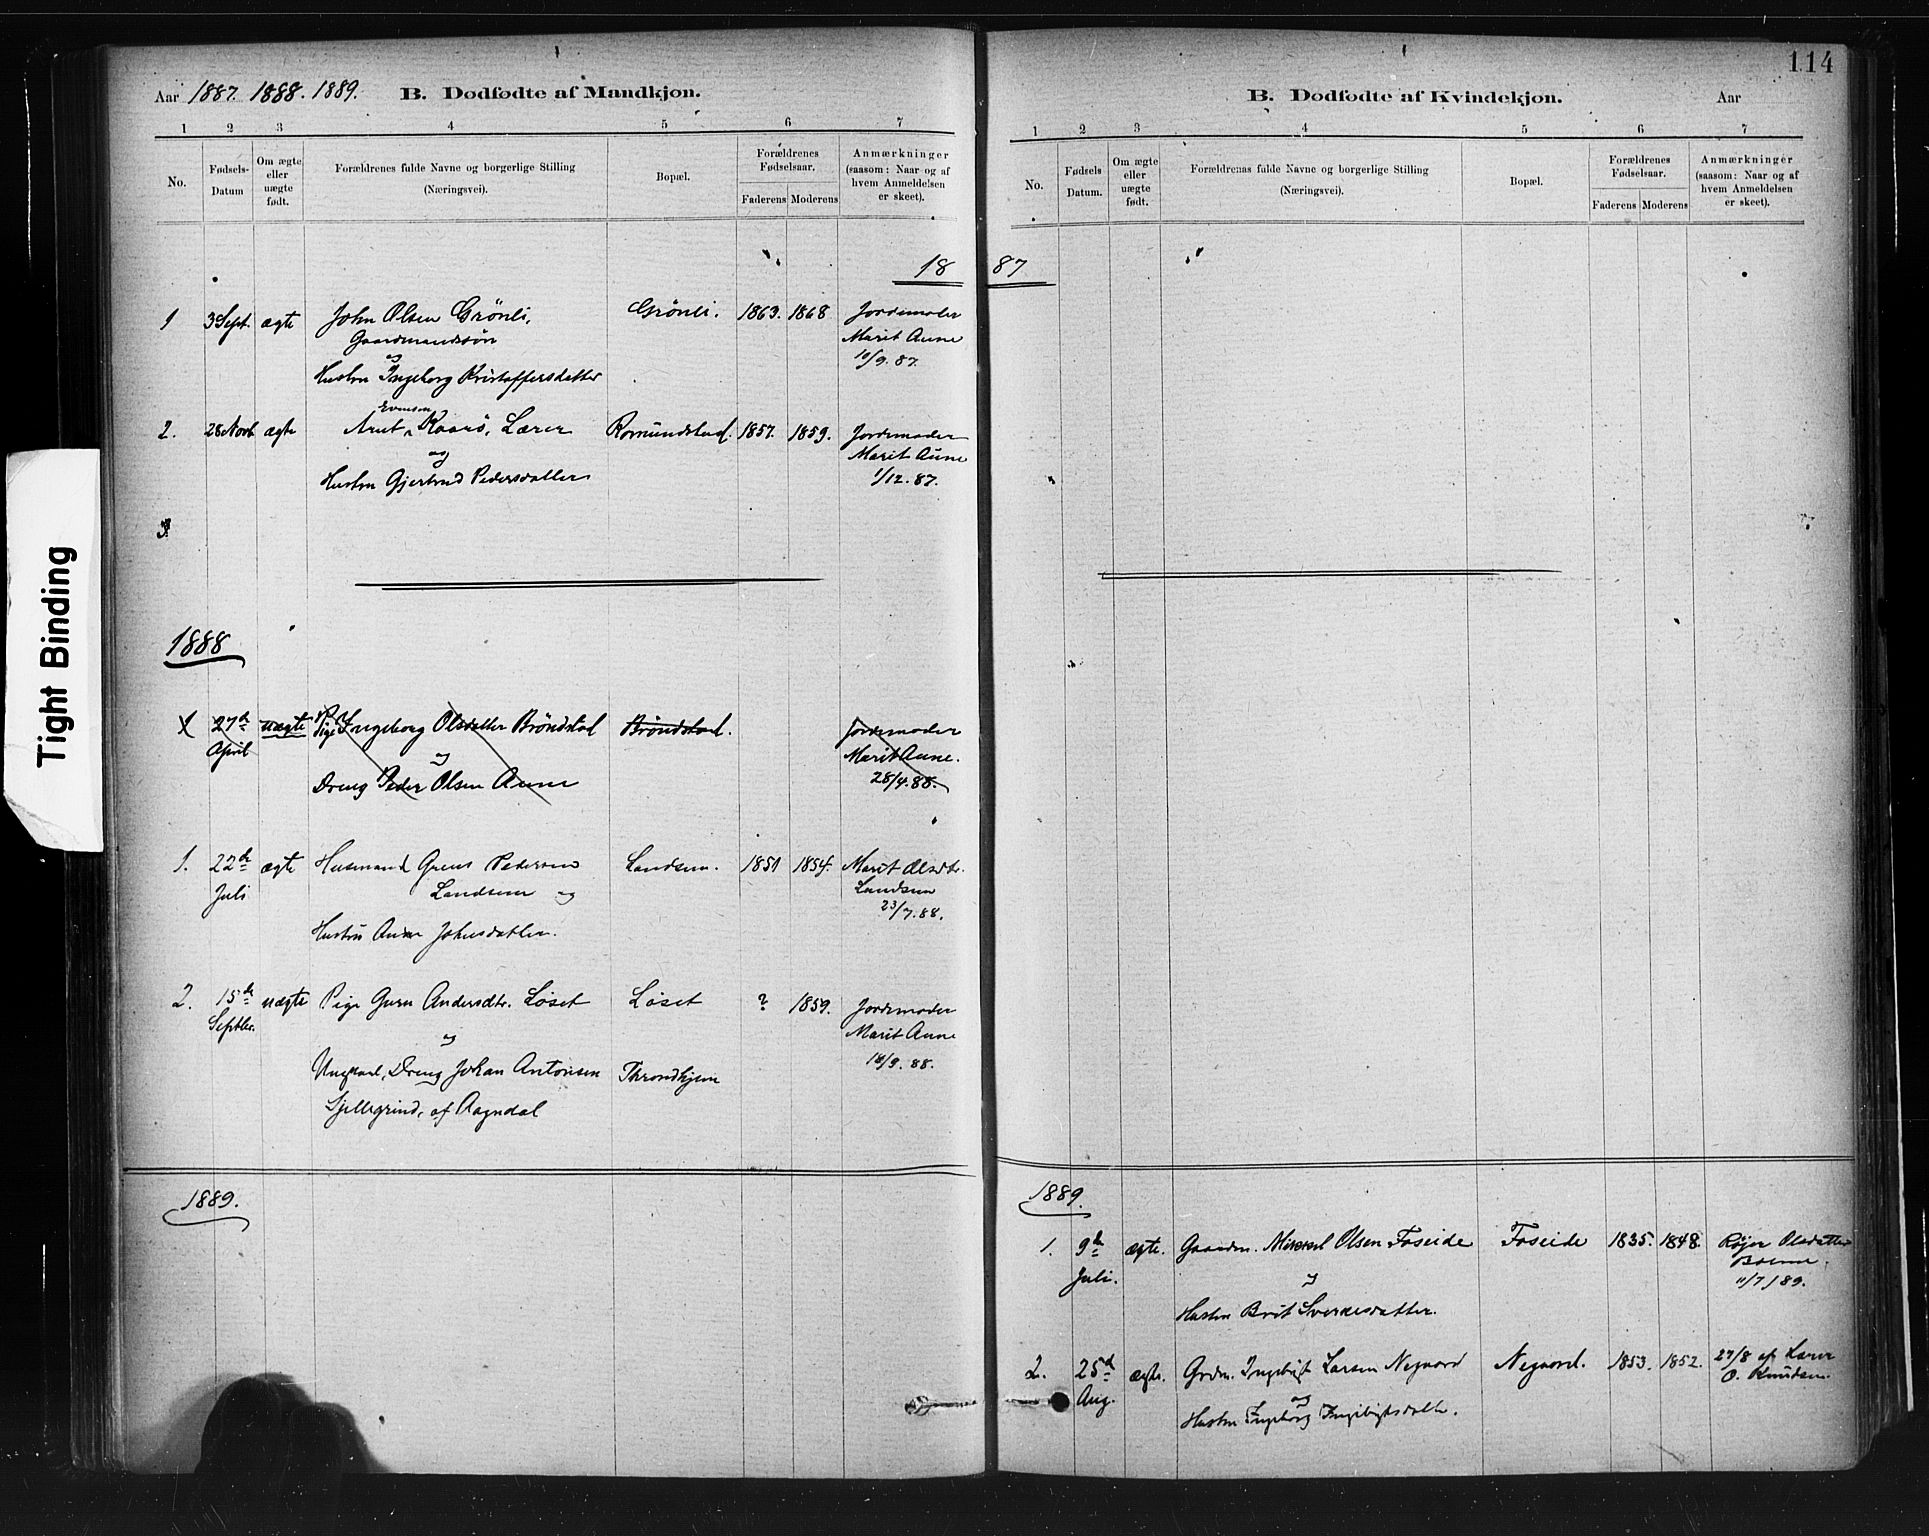 Tight Binding
Aar 1887. 1888. 1889. B. Dødfødte af Mandkjøn.
1 2 3 4 5 6 7
No. Fødsels-Datum Om ægte eller uægte født. Forældrenes fulde Navne og borgerlige Stilling (Næringsvei). Bopæl. Forældrenes Fødselsaar. Faderens Moderens Anmærkninger (saasom: Naar og af hvem Anmeldelsen er skeet).
18 87
1 3 Sept. ægte John Olsen Grönli, Grönli. 1863. 1868 Jordemoder
Gaardmandssön Marit Aune
og 10/9. 87.
Hustru Ingeborg Kristoffersdatter
Evensen
2. 28 Novb ægte Arnt Kaarö, Lærer Romundstad. 1857. 1859. Jordemoder
og Marit Aune
Hustru Gjertrud Pedersdatter 1/12. 87.
3
1888
1 27de uægte Pige Ingeborg Olsdatter Bröndstad Bröndstad. Jordemoder
April og Marit Aune.
Dreng Peder Olsen Aune 28/4. 88.
1. 22de ægte Husmand Pedersen Landsem. 1851 1854. Marit Olsdtr.
Juli Landsem og Landsem
23/7. 88.
Hustru Anne Johnsdatter.
2. 15de uægte Pige Guru Andersdtr. Löset Löset ? 1859. Jordemoder
Septbr. og Marit Aune
18/9. 88.
Ungkarl, Dreng Johan Antonsen Throndhjem
af
1889.
114
B. Dødfødte af Kvindekjøn. Aar
1 2 3 4 5 6 7
No. Fødsels Datum. Om ægte eller uægte født. Forældrenas fulde Navne og borgerlige Stilling (Næringsvei). Bopæl. Forældrenes Fødselsaar. Faderens Moderens Anmærkninger (saasom: Naar og af hvem Anmeldelsen er skeet).
1889.
1. 9de ægte. Gaardm. Mikkel Olsen Foseide Foseide 1835. 1848. Olsdatter
Juli. og 11/7 89.
Hustru Brit Sverkesdatter.
2. 25d ægte. Grdm. Ingebrigt Larsen Negaard Negaard. 1853. 1852. 27/8 af Lærer
Aug. og O. Knudsen.
Hustru Ingeborg Ingebrigtsdatter.